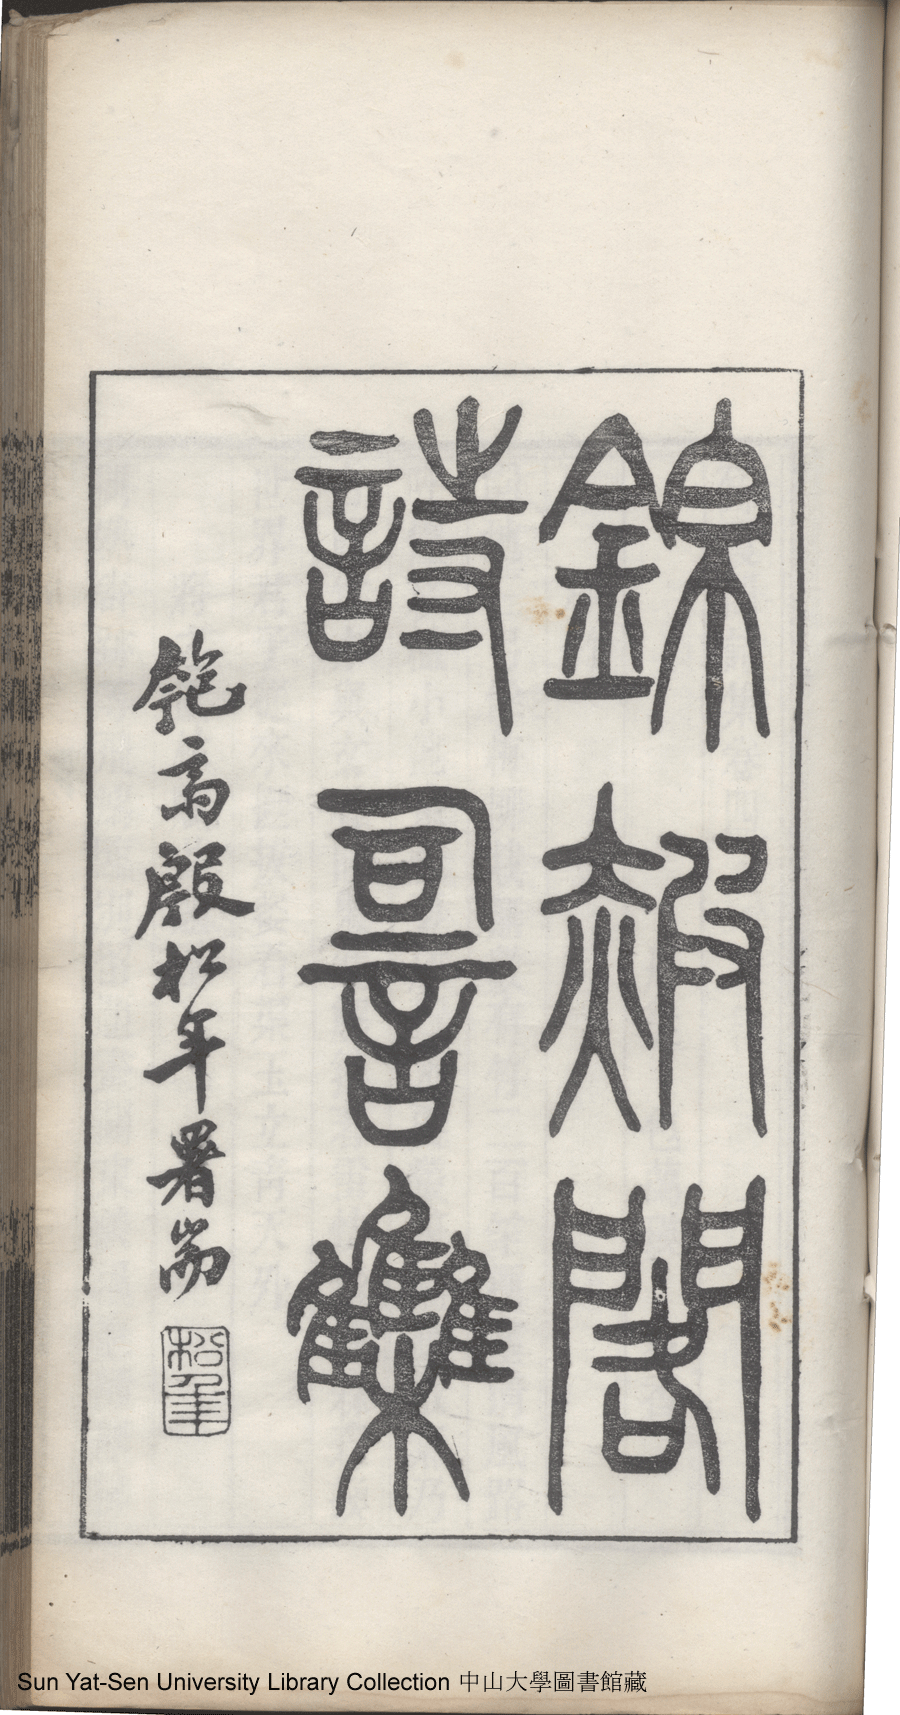 錦赮閣
詩䛐雧
匏 殷松年署耑
松年
Sun Yat-Sen University Library Collection 中山大學圖書館藏